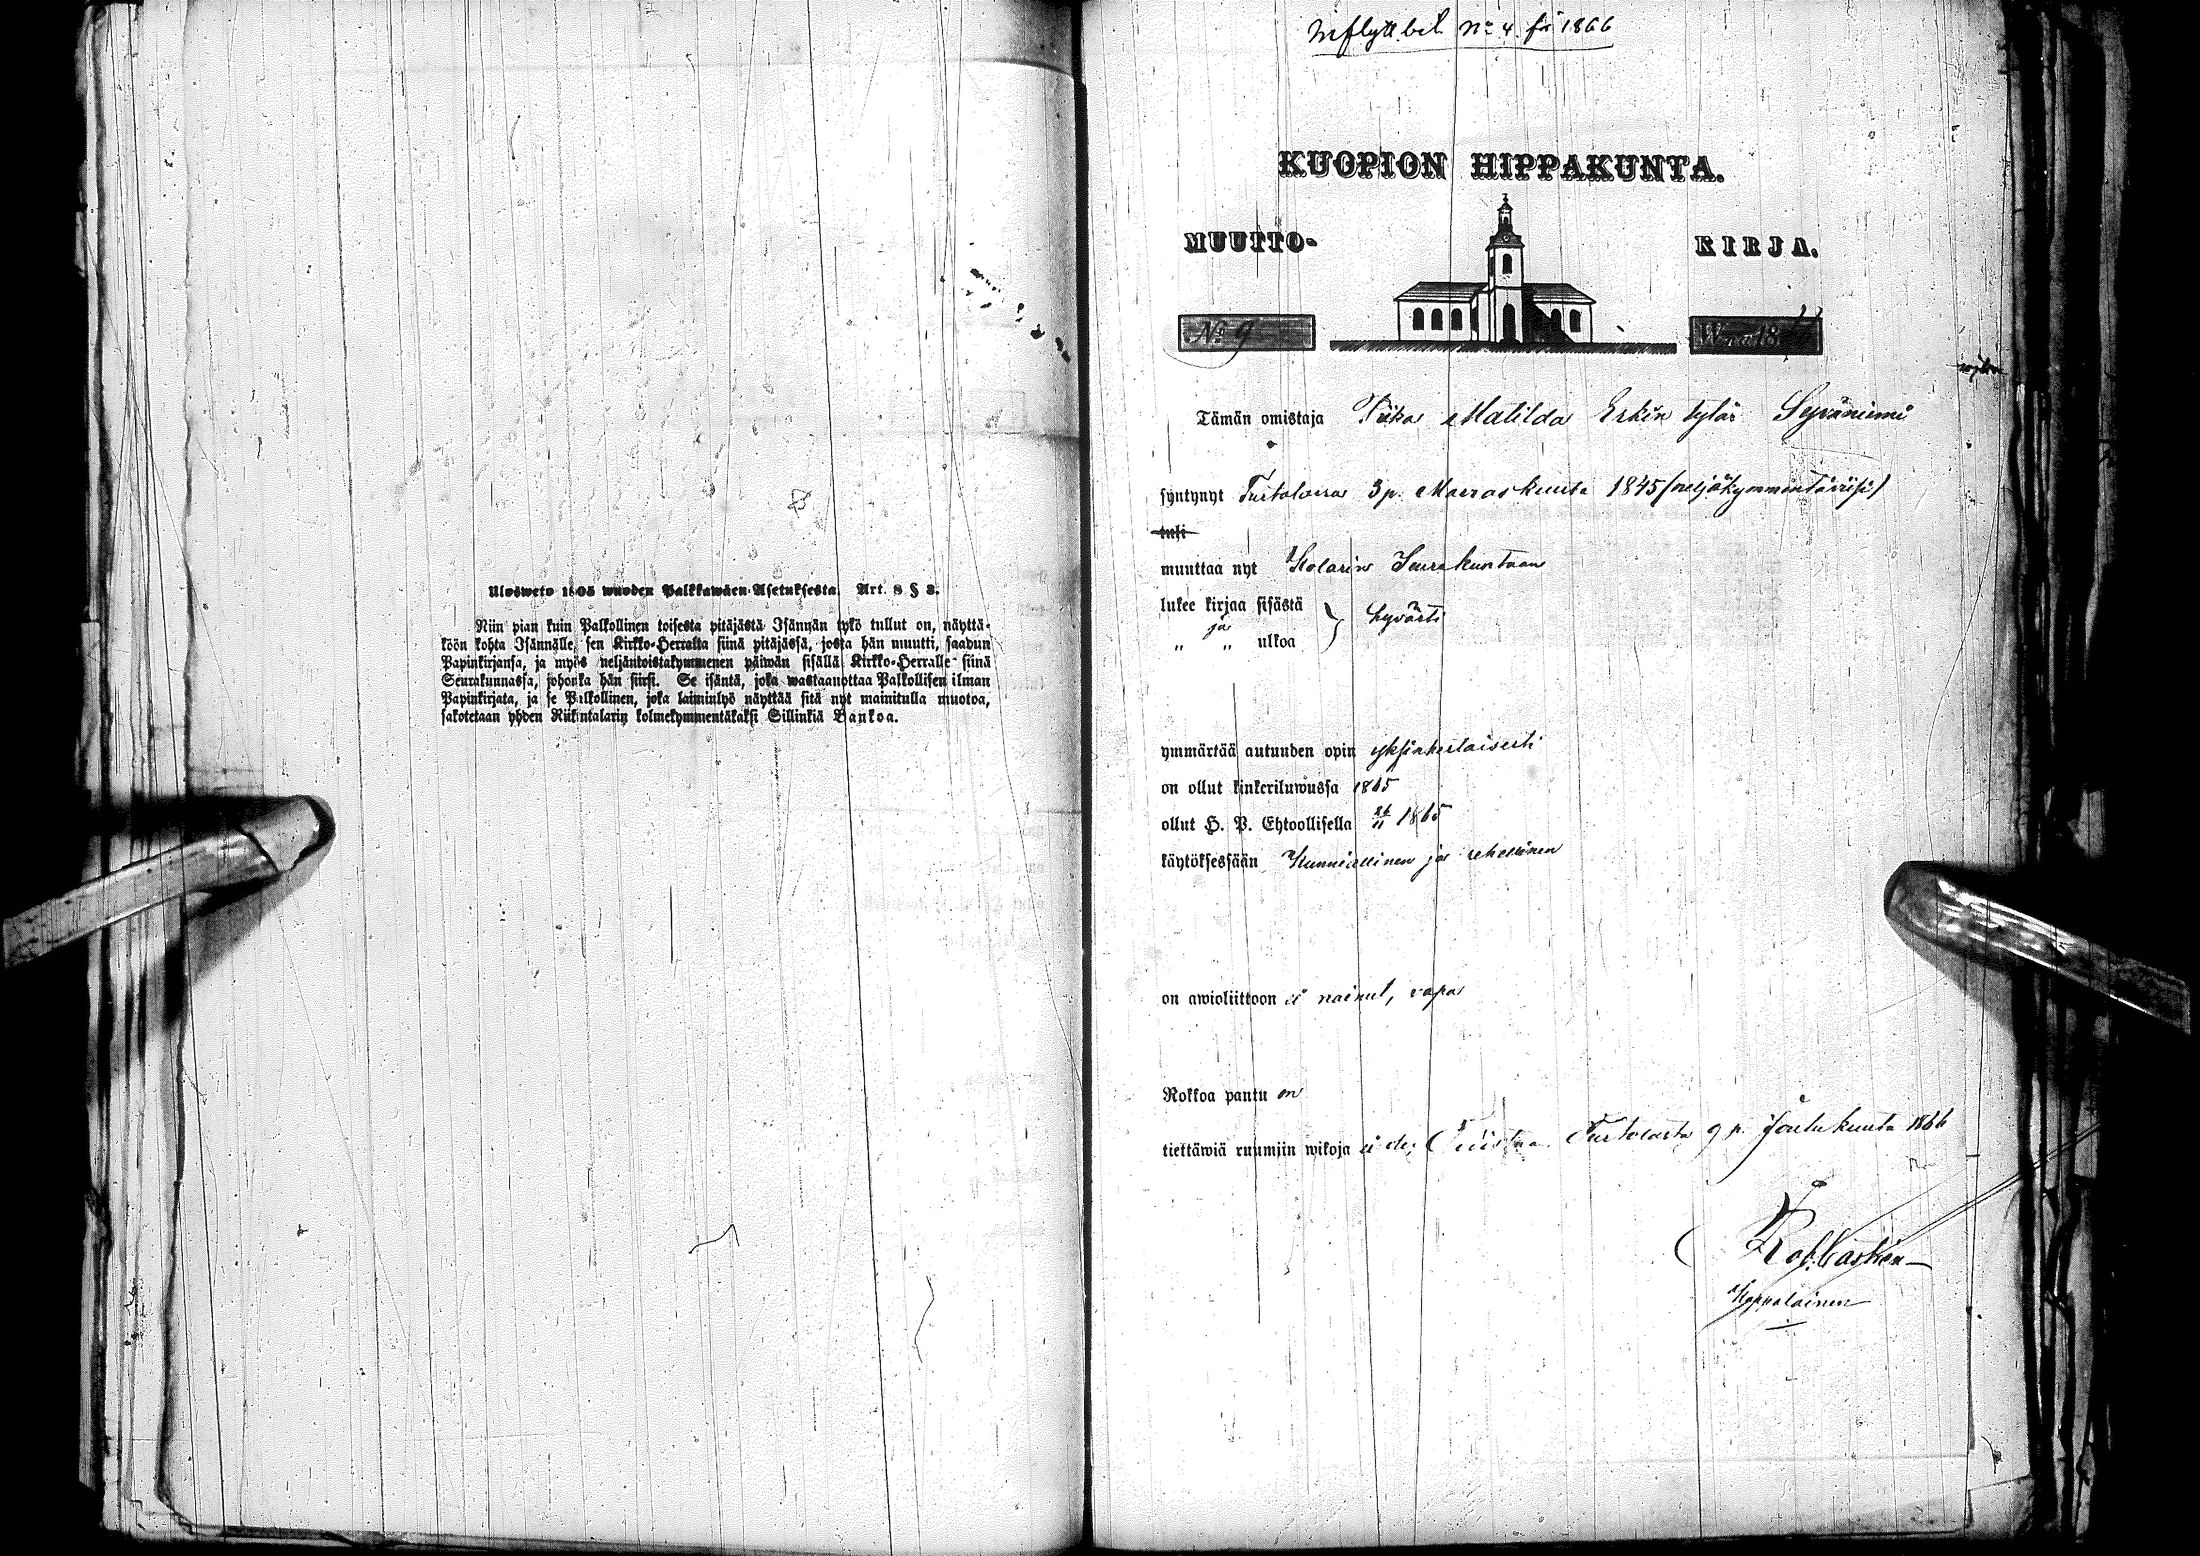 Ulosweto 1805 wuoden Palkkawäen-Asetuksesta. Art. 8 § 3.
Niin pian kuin Palkollinen toisesta pitäjästä Isännän tykö tullut on, näyttä-
köön kohta Isännälle, sen Kirkko-Herralta siinä pitäjässä, josta hän muutti, saadun
Papinkirjansa, ja myös neljäntoistakymmenen päiwän sisällä Kirkko-Herralle siinä
Seurakunnassa, johonka hän siirsi. Se isäntä, joka wastaanottaa Palkollisen ilman
Papinkirjata, ja se Palkollinen, joka laiminlyö näyttää sitä nyt mainitulla muotoa,
sakotetaan yhden Riikintalarin kolmekymmentäkaksi Sillinkiä Bankoa.
Inflytt. bet. No 4 för 1866
KUOPION HIPPAKUNTA.
MUUTTO- KIRJA.
No 9 W:na 1866
Tämän omistaja Piika Matilda Erkin tytär Syväniemi
syntynyt Turtolassa 3 p. Marraskuuta 1845 (neljäkymmentäviisi)
tuli
muuttaa nyt Kolarin Seurakuntaan
lukee kirjaa sisästä
ja } hyvästi
„ „ ulkoa
ymmärtää autuuden opin yksinkertaisesti
on ollut kinkeriluwussa 1865
ollut H. P. Ehtoollisella 1865
käytöksessään Kunniallinen ja rehellinen
on awioliittoon ei nainut, vapa
Rokkoa pantu on
tiettäwiä ruumiin wikoja ei ole; Turtolasta 9 p. Joulukuuta 1866
Rob. Castrén
Kappalainen